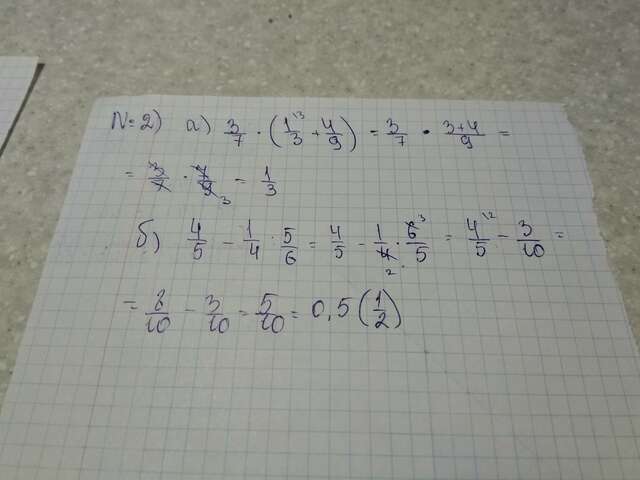 № 2) а) 3/7 · (1/3 \3 + 4/9) = 3/7 · 3+4/9 =
= 3/7 · 7/9 3 = 1/3
б) 4/5 - 1/4 · 5/6 = 4/5 - 1/4 2 · 6 3/5 = 4/5 \2 - 3/10 =
= 8/10 - 3/10 = 5/10 = 0,5 (1/2)